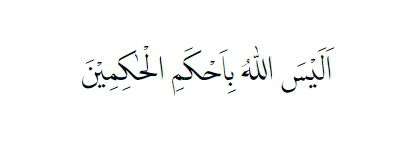 اَلَيْسَ اللّٰهُ بِاَحْكَمِ الْحٰكِمِيْنَ